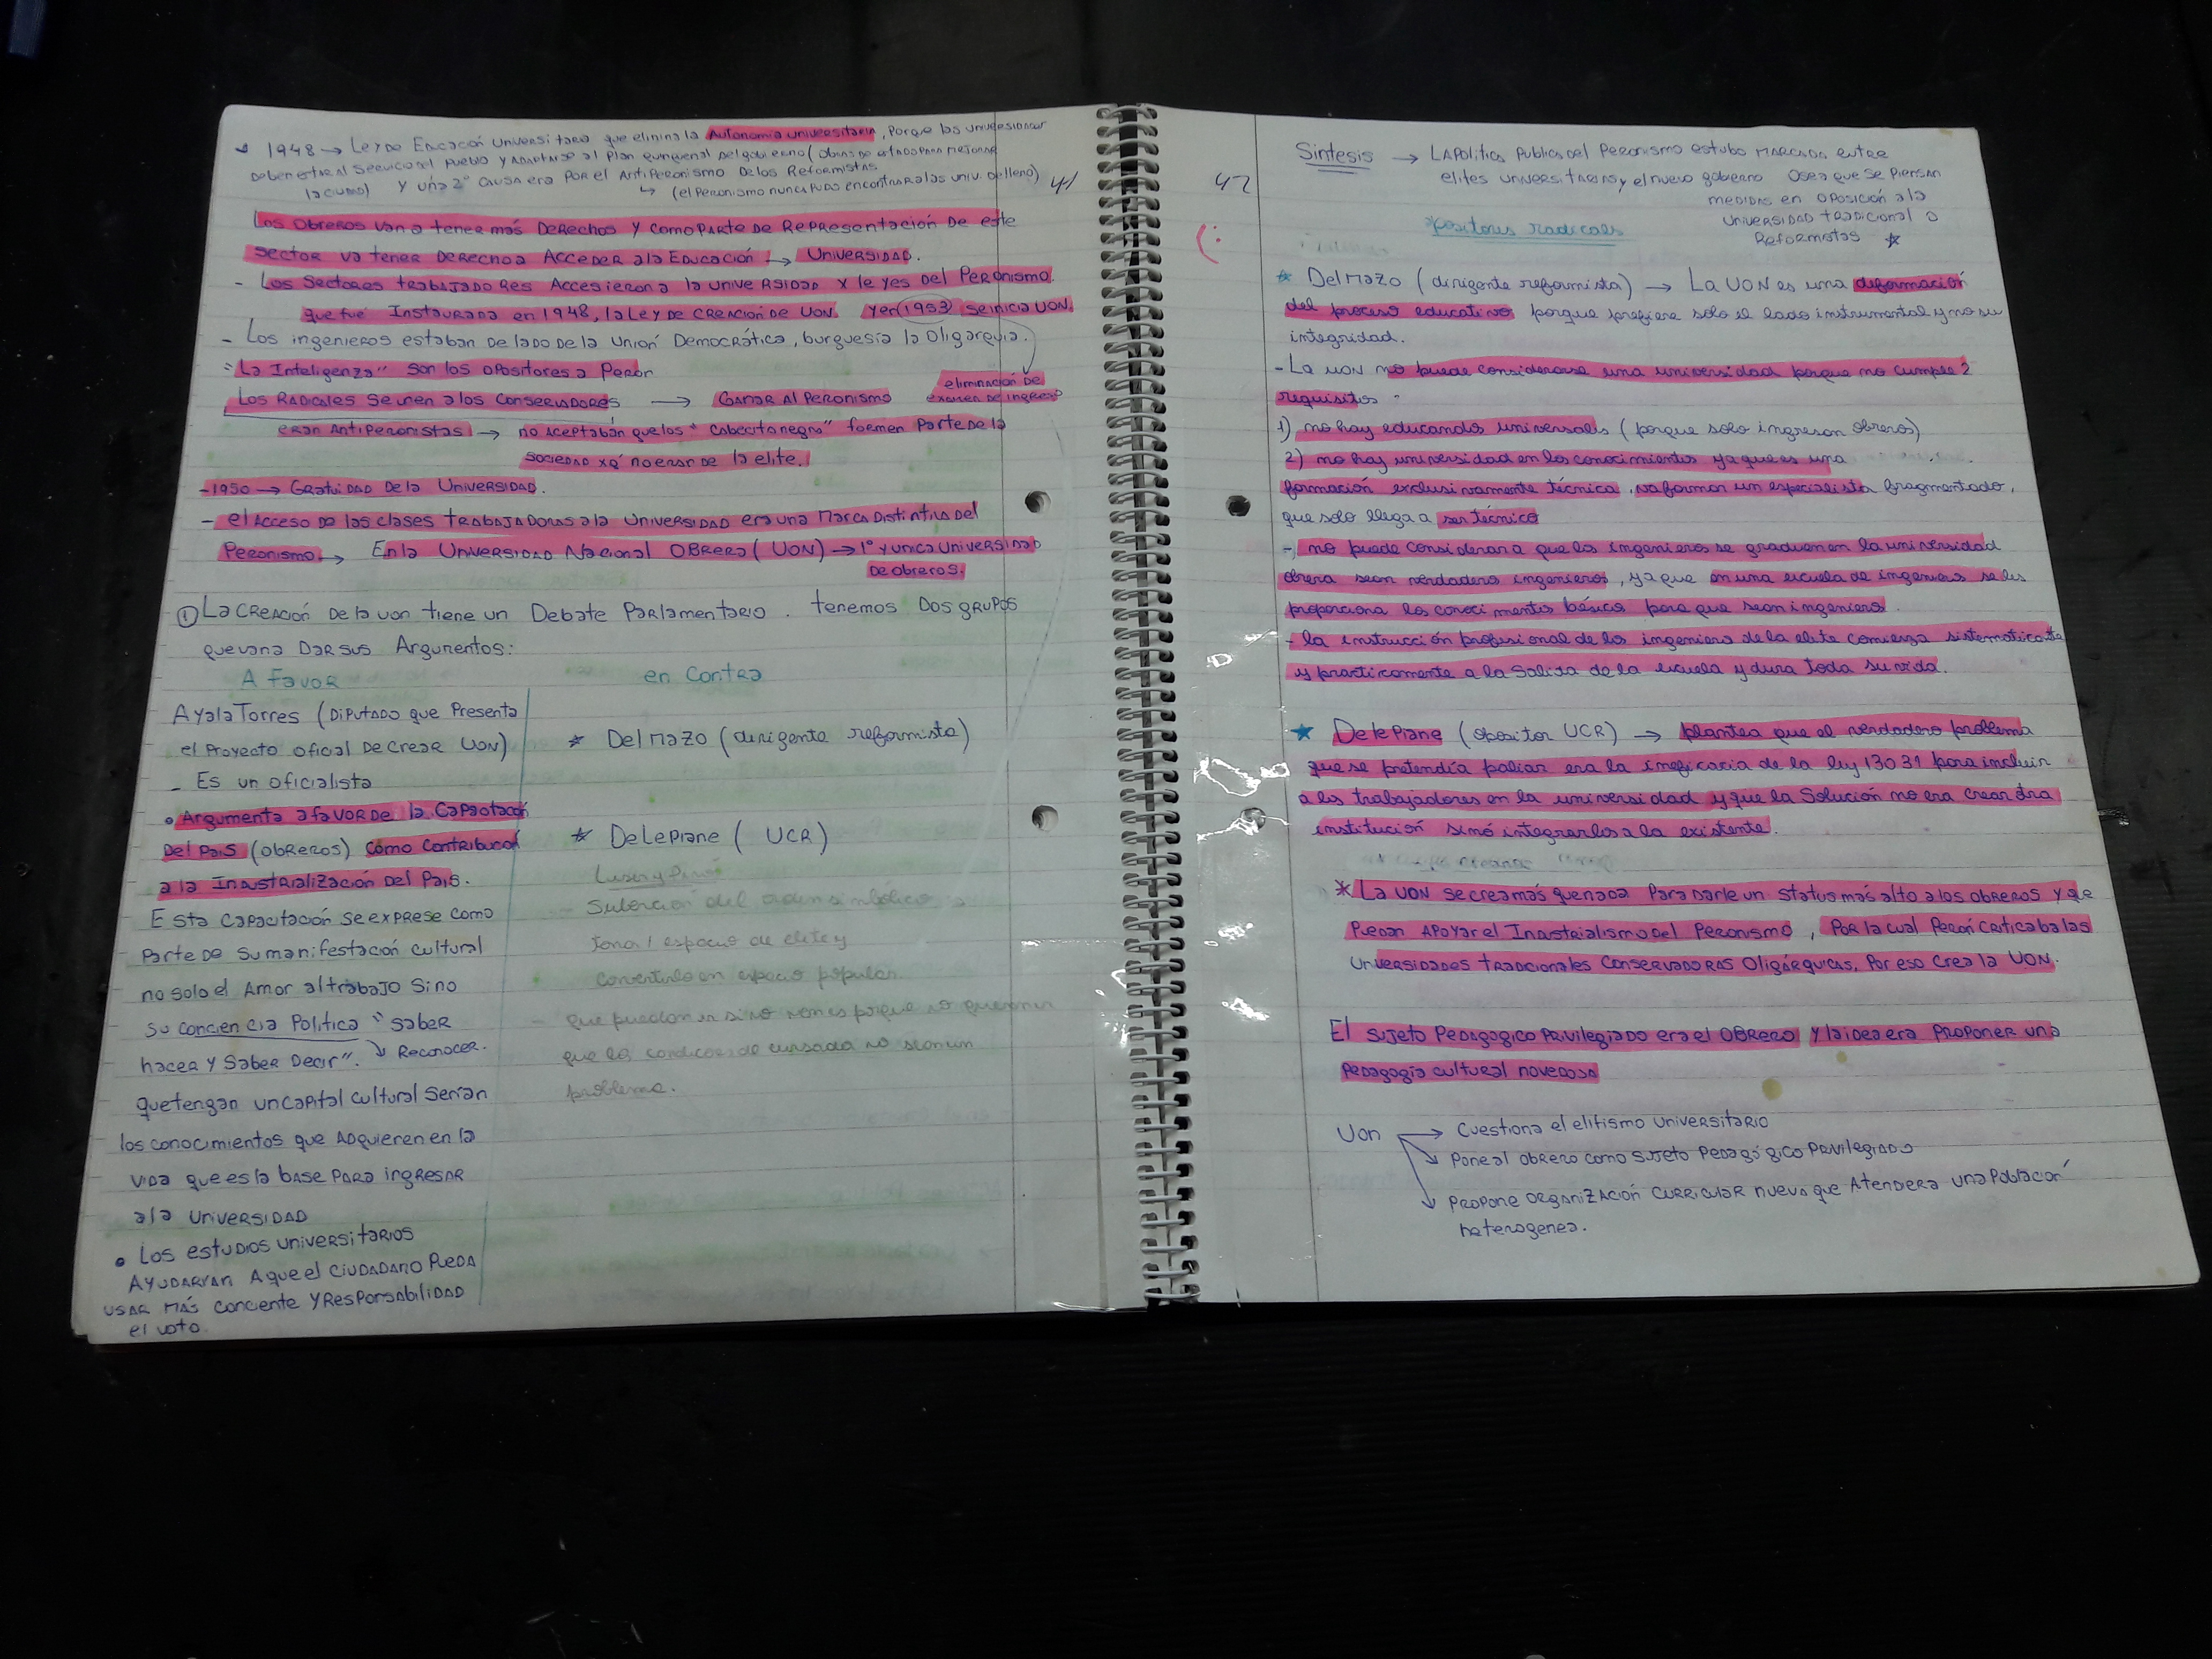 1948 → Ley de Educación Universitaria que elimina la Autonomia universitaria, porque las universidades
deben estar al servicio del pueblo y adaptarse al Plan quinquenal del gobierno (obras de estado para mejorar
la ciudad) y una 2° causa era por el AntiPeronismo de los Reformistas
↳ (el Peronismo nunca pudo encontrar a las univ. de lleno)
41
Los obreros van a tener más Derechos y como parte de Representación de este
sector va tener derecho a Acceder a la Educación → Universidad.
- Los Sectores trabajadores Accesieron a la universidad x leyes del Peronismo
que fué Instaurada en 1948, la Ley de creación de UON. y en 1953 se inicia UON.
- Los ingenieros estaban de lado de la Unión Democrática, burguesía la Oligarquia.
"La Inteligenza" son los opositores a Perón
eliminación de
examen de ingreso
Los Radicales se unen a los Conservadores → Ganar al Peronismo
eran AntiPeronistas → no aceptabán que los "Cabecita negra" formen parte de la
sociedad xq' no eran de la elite.
- 1950 → Gratuidad de la Universidad.
- el Acceso de las clases trabajadoras a la Universidad era una Marca Distintiva del
Peronismo → En la Universidad Nacional Obrera (UON) → 1° y unica Universidad
de obreros.
① La creación de la uon tiene un Debate Parlamentario. tenemos dos grupos
que van a dar sus Argumentos:
A favor
en Contra
Ayala Torres (Diputado que Presenta
el Proyecto oficial de crear UON)
- Es un oficialista
• Argumenta a favor de la Capacitación
del País (obreros) como contribución
a la Industrialización del País.
Esta capacitación se exprese como
parte de su manifestación cultural
no solo el Amor al trabajo sino
su conciencia Politica "saber
hacer y saber decir". ↘ Reconocer.
que tengan un capital cultural serían
los conocimientos que adquieren en la
vida que es la base para ingresar
a la Universidad
• Los estudios universitarios
ayudarían a que el ciudadano pueda
usar más conciente y responsabilidad
el voto.
* Del Mazo (dirigente reformista)
* Delepiane (UCR)
del orden simbólico
espacio de elite y
convertirlo en espacio popular
que puedan ir si no van es porque no quieran
que las condiciones de cursada no sean un
problema.
42
Síntesis → La Politica Publica del Peronismo estubo marcada entre
elites universitarias y el nuevo gobierno osea que se piensan
medidas en oposición a la
universidad tradicional o
Reformistas ☆
opositores radicales
* Del Mazo (dirigente reformista) → La UON es una deformación
del proceso educativo porque prefiere solo el lado instrumental y no su
integridad.
- La UON no puede considerarse una universidad porque no cumple 2
requisitos -
1) no hay educandos universales (porque solo ingresan obreros)
2) no hay universidad en los conocimientos ya que es una
formación exclusivamente técnica, va formar un especialista fragmentado,
que solo llega a ser técnico
- no puede considerar a que los ingenieros se gradúen en la universidad
obrera sean verdaderos ingenieros, ya que en una escuela de ingenieros se les
proporciona los conocimientos básicos para que sean ingenieros.
- la instrucción profesional de los ingenieros de la elite comienza sistematicate
y practicamente a la salida de la escuela y dura toda su vida.
* Delepiane (opositor UCR) → plantea que el verdadero problema
que se pretendía paliar era la ineficacia de la ley 13031 para incluir
a los trabajadores en la universidad y que la Solución no era crear otra
institución sinó integrarlos a la existente.
* La UON se crea más que nada para darle un status más alto a los obreros y que
puedan apoyar el Industrialismo del Peronismo, por la cual Perón criticaba las
universidades tradicionales Conservadoras Oligárquicas, por eso crea la UON.
El sujeto Pedagogico Privilegiado era el obrero y la idea era proponer una
pedagogía cultural novedosa
Uon → Cuestiona el elitismo universitario
↘ Pone al obrero como sujeto Pedagógico Privilegiado
↘ Propone organización curricular nueva que Atendera una Población
heterogenea.